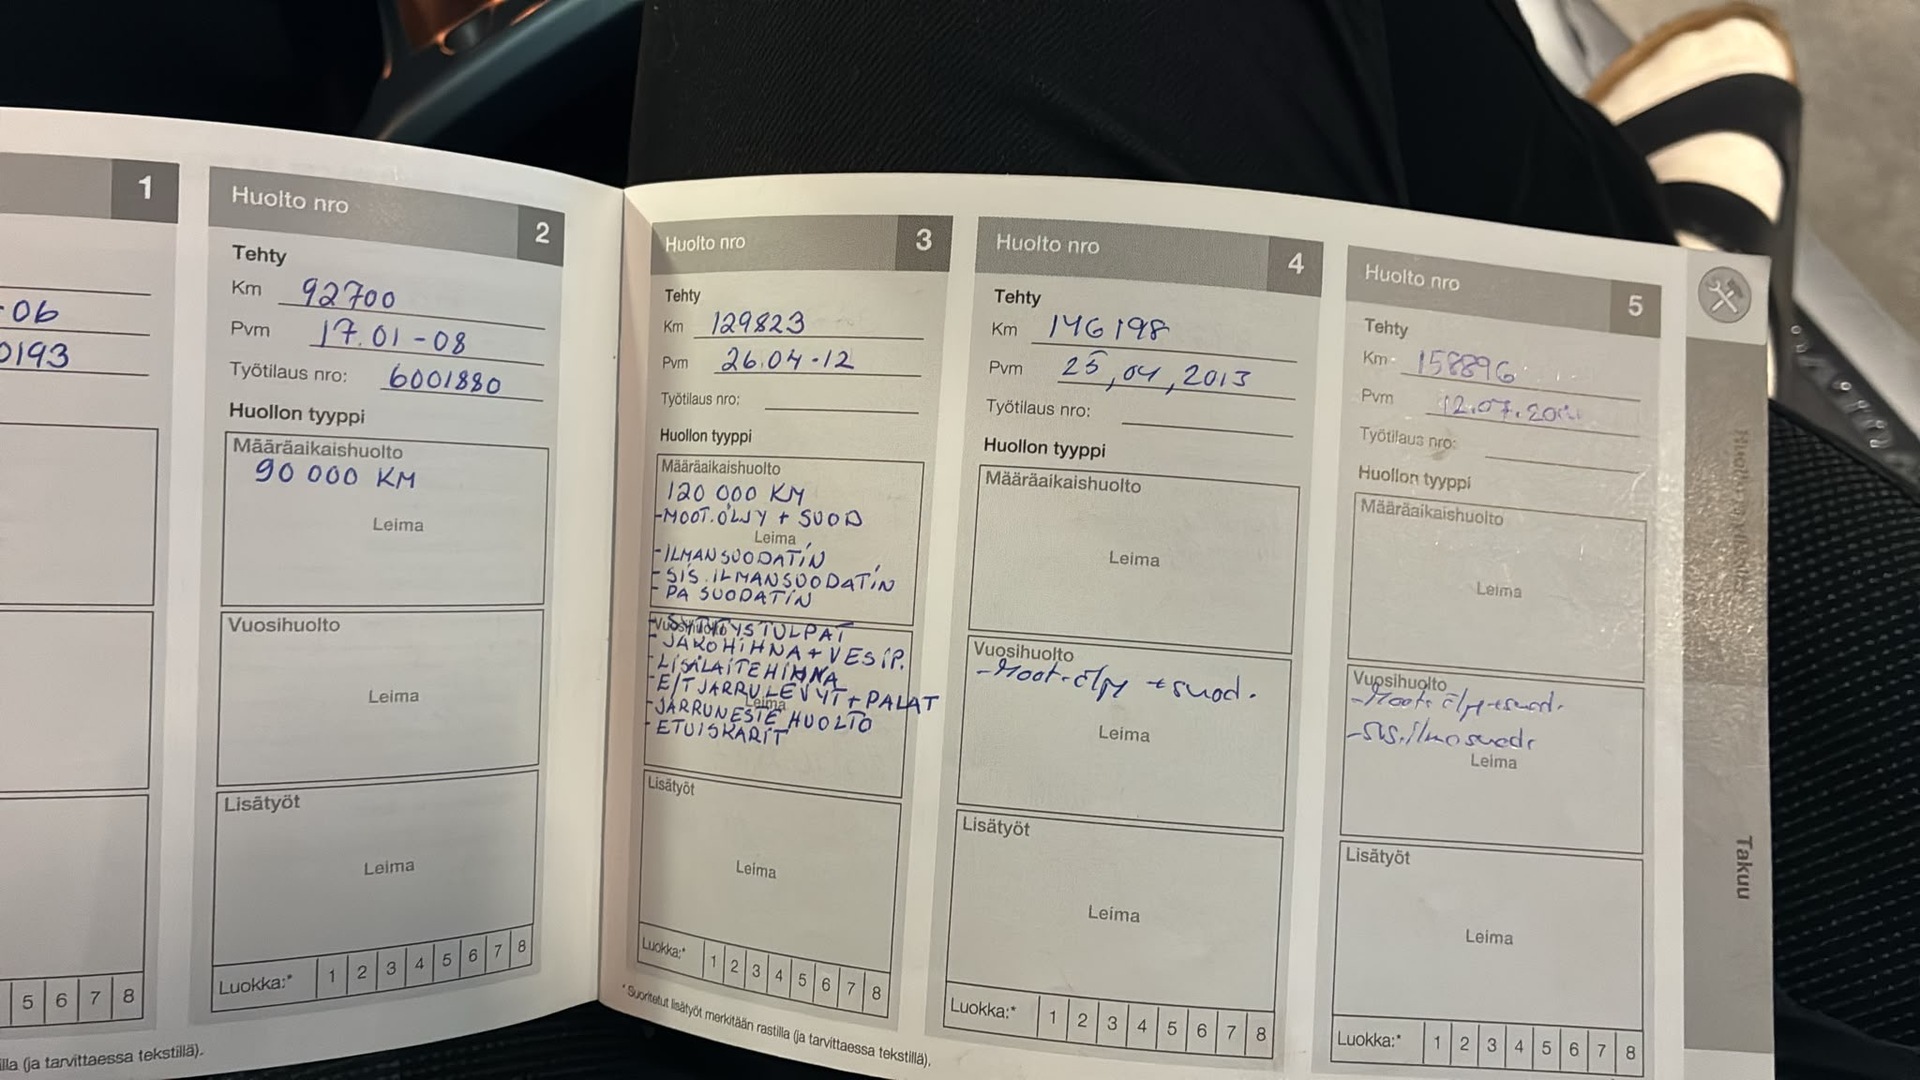 1
-06
0193
5 6 7 8
illa (ja tarvittaessa tekstillä).
Huolto nro 2
Tehty
Km 92700
Pvm 17.01-08
Työtilaus nro: 6001880
Huollon tyyppi
Määräaikaishuolto
90 000 KM
Leima
Vuosihuolto
Leima
Lisätyöt
Leima
Luokka:* 1 2 3 4 5 6 7 8
Huolto nro 3
Tehty
Km 129823
Pvm 26.04-12
Työtilaus nro:
Huollon tyyppi
Määräaikaishuolto
120 000 KM
-MOOT.ÖLJY + SUOD
Leima
-ILMANSUODATIN
-SIS.ILMANSUODATIN
-PA SUODATIN
Vuosihuolto
-SYTYTYSTULPAT
-JAKOHIHNA + VESIP.
-LISÄLAITEHIHNA
-E/T JARRULEVYT + PALAT
Leima
-JARRUNESTE HUOLTO
-ETUISKARIT
Lisätyöt
Leima
Luokka:* 1 2 3 4 5 6 7 8
* Suoritetut lisätyöt merkitään rastilla (ja tarvittaessa tekstillä).
Huolto nro 4
Tehty
Km 146198
Pvm 25,04,2013
Työtilaus nro:
Huollon tyyppi
Määräaikaishuolto
Leima
Vuosihuolto
-Moot.öljy +suod.
Leima
Lisätyöt
Leima
Luokka:* 1 2 3 4 5 6 7 8
Huolto nro 5
Tehty
Km 158896
Pvm
Työtilaus nro:
Huollon tyyppi
Määräaikaishuolto
Leima
Vuosihuolto
-Moot.öljy+suod.
-sis.ilmasuod.
Leima
Lisätyöt
Leima
Luokka:* 1 2 3 4 5 6 7 8
Takuu